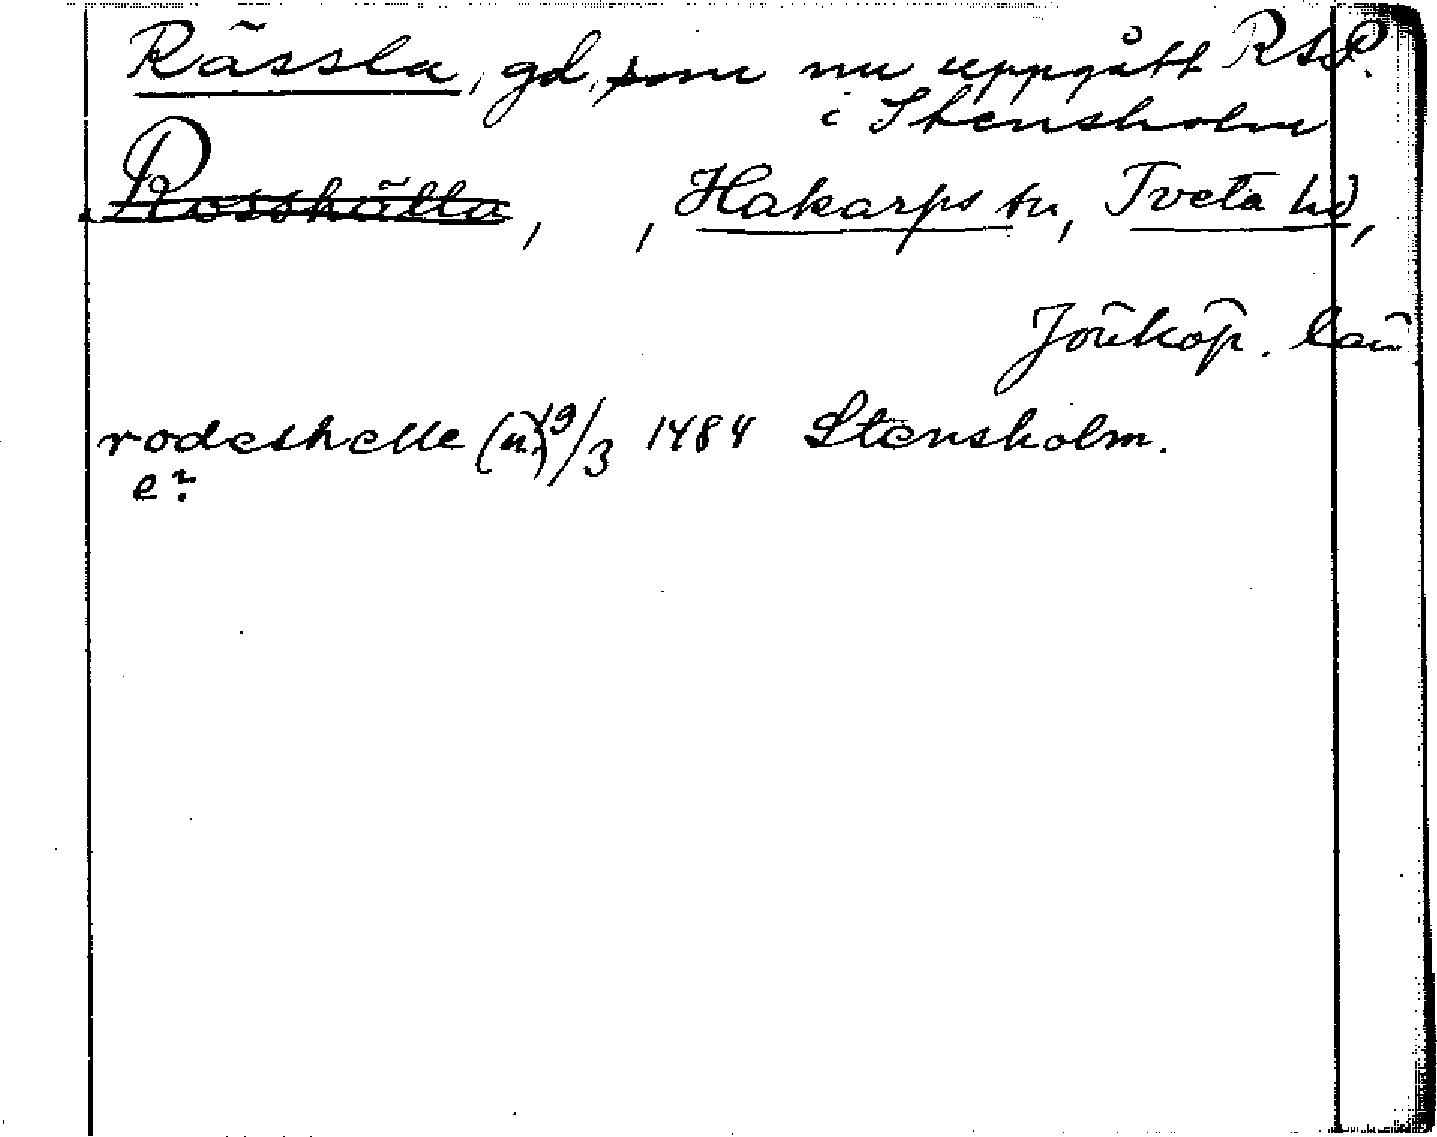 Rässla, gd, som nu uppgått
i Stensholm
Rosshälla, , Hakarps sn, Tveta hd,
Jönköp. län
rodeshelle (n.) 19/3 1484 Stensholm.
e?